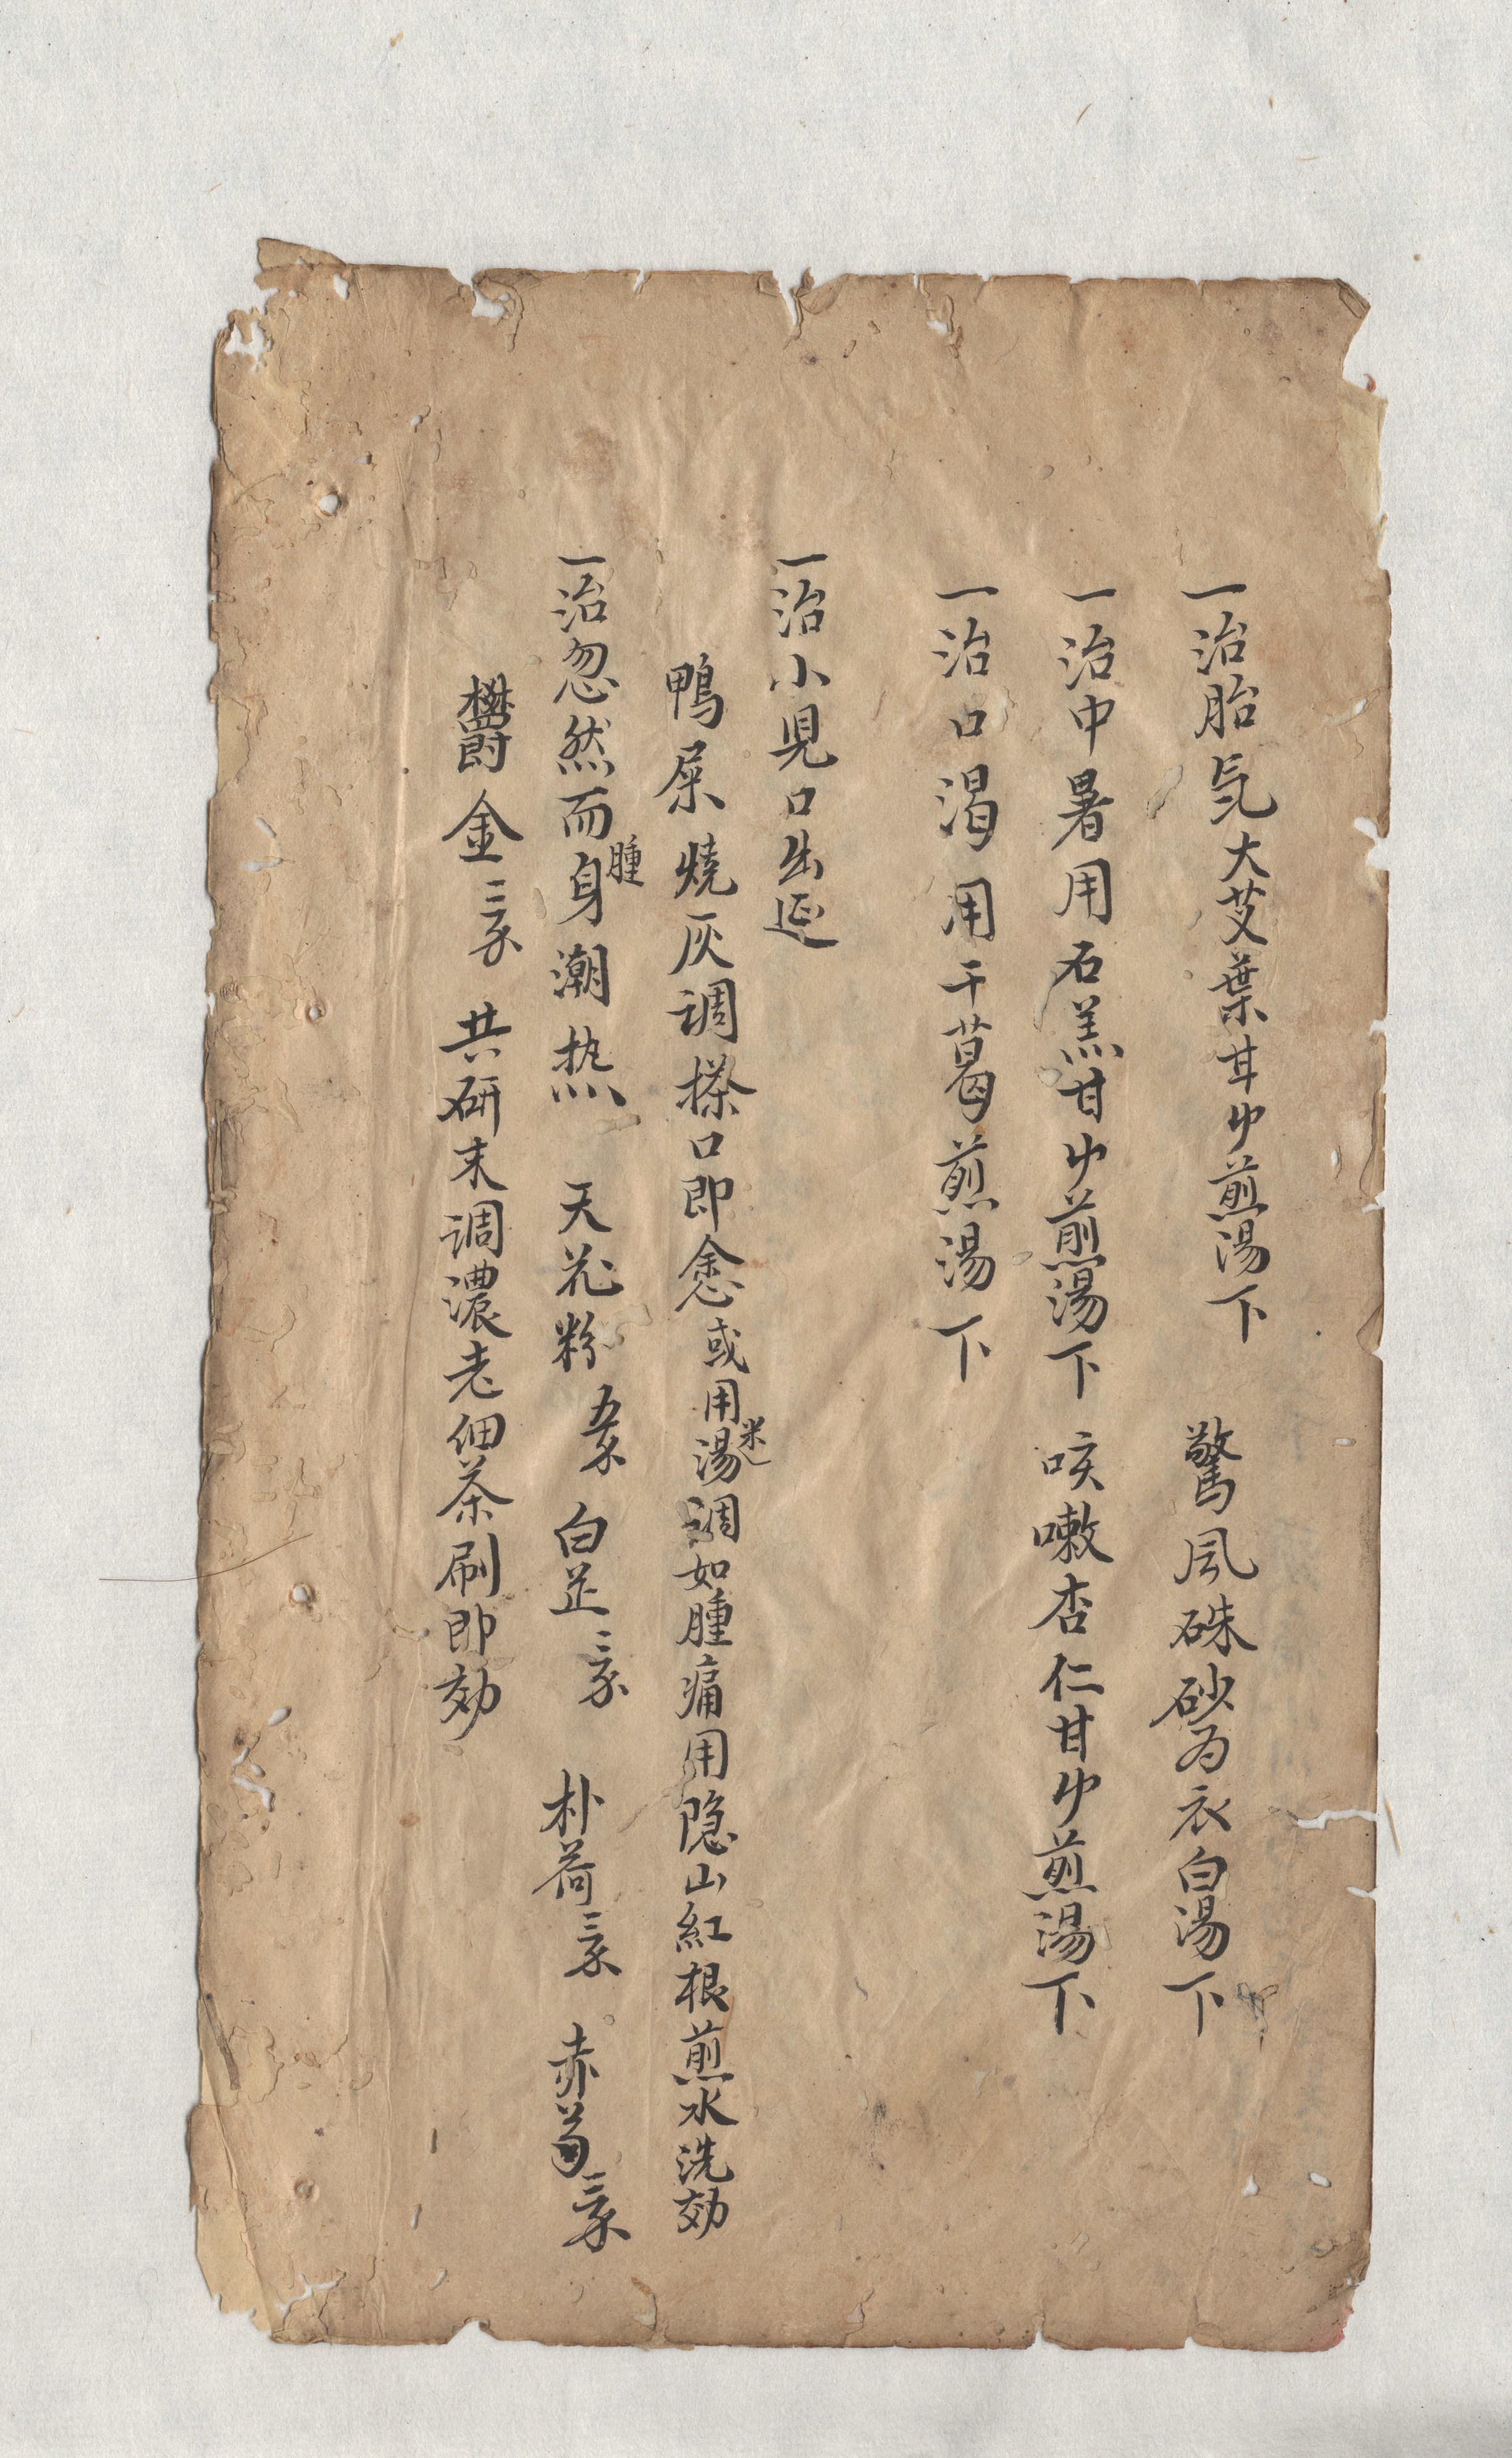 一治胎気大艾葉甘屮煎湯下 驚風硃砂为衣白湯下
一治中暑用石羔甘屮煎湯下 咳嗽杏仁甘屮煎湯下
一治口渴用干葛煎湯下
一治小児口出涎
鴨屎燒灰调搽口即愈或用米湯调如腫痛用隐山紅根煎水洗効
一治忽然而身腫潮热 天花粉 五 白芷 三 朴荷 三 赤芍 三
欝金 三 共研末调濃老细茶刷即効